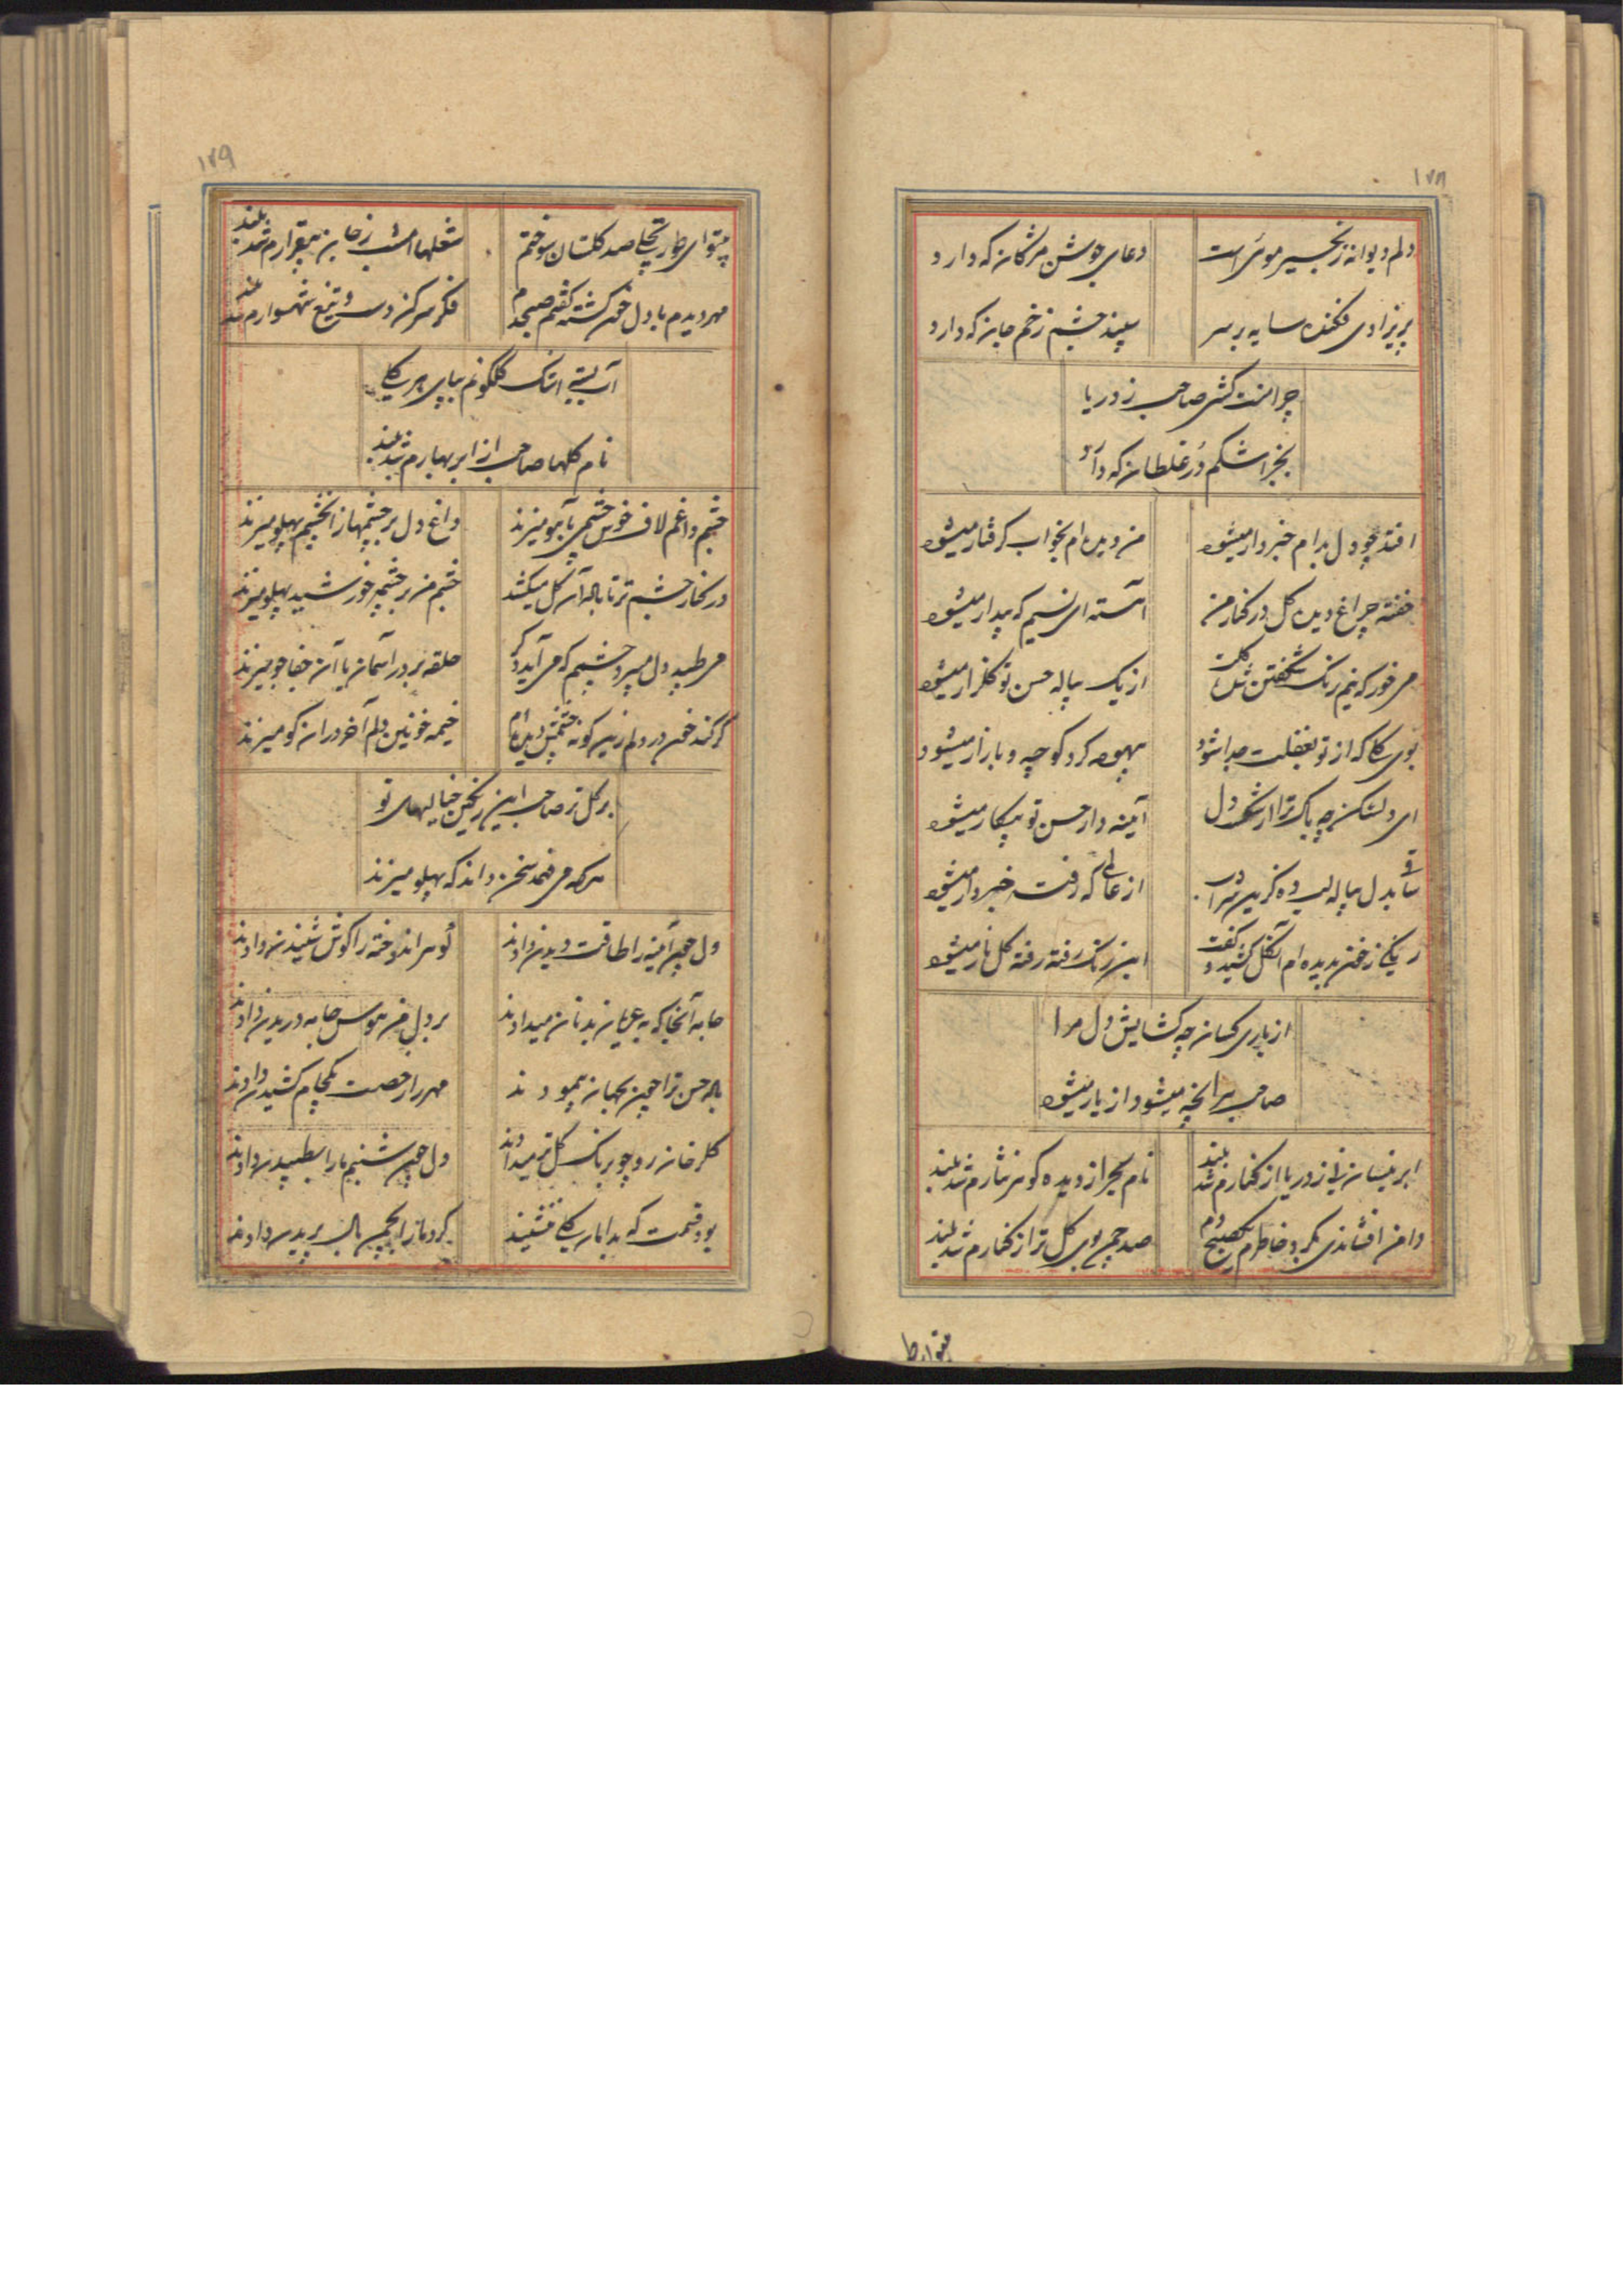 ۱۷۸
دلم دیوانه زنجیر موئی است
دعای جوشن مژگان که دارد
پریزادی فکنده سایه بر سر
سپند چشم زخم جان که دارد
چرا منت کشی صاحب ز دریا
بجز اشکم در غلطان که دارد
افتد چو دل بدام خبردار میشود
من دیده‌ام بخواب گرفتار میشود
خفته چراغ دیده گل در کنار من
آهسته ای نسیم که بیدار میشود
می خور که نیم رنگ شکفتن شکل
از یک پیاله حسن تو گلزار میشود
بوی گلی که از تو بغفلت جدا شود
بیهوده گرد کوچه و بازار میشود
ای دلشکن چه باک ترا از شکست دل
آئینه‌دار حسن تو بیکار میشود
ساقی بدل پیاله لب ده کزین شراب
از عالمی که رفت خبردار میشود
رنگی ز خون دیده‌ام آن گل کشید و گفت
این رنگ رفته رفته گل نار میشود
از یاری کسان چه گشایش دل مرا
صاحب هر آنچه میشود از یار میشود
ابر نیسان نی ز دریا از کنارم شد بلند
نام بحر از دیده گوهر نثارم شد بلند
دامن افشاندی بگرد خاطرم یک صبحدم
صد چمن بوی گل تر از کنارم شد بلند
۱۷۹
بیتو ای طور تجلی صد گلستان سوختم
شعلها امشب ز جان بیقرارم شد بلند
مهر دیدم با دل خون گشته گفتم صبحدم
فکر سر کن دست و تیغ شهسوارم شد بلند
آب بسته اشک گلگونم بپای هر گلی
نام گلها صاحب از ابر بهارم شد بلند
چشم داغم لاف خوش چشمی بآهو میزند
داغ دل بر چشمها زان چشم پهلو میزند
در کنار چشم تر تا باله آن گل میکشد
چشم من بر چشمه خورشید پهلو میزند
می طپد دل میپرد چشمم که می آید دگر
حلقه بر در آسمان یا آن جفاجو میزند
گر کند خون در دلم زین گونه چشمش دیده‌ام
خیمه خونین دلم آخر در آن کو میزند
بر گل تر صاحب این رنگین خیالیهای تو
هر که می فهمد سخن داند که پهلو میزند
دل چون آینه را طاقت دیدن دادند
گوهر اندوخته را گوش شنیدن دادند
جامه آنجا که به عریان بدنان میدادند
بر دل من هوس جامه دریدن دادند
باله حسن ترا چون بجهان پیمودند
مهر را رخصت یکجام کشیدن دادند
گلرخان رو چو برنگ گل تر میدادند
دل چون شبنم ما را بطپیدن دادند
بود قسمت که بدامان گلی ننشیند